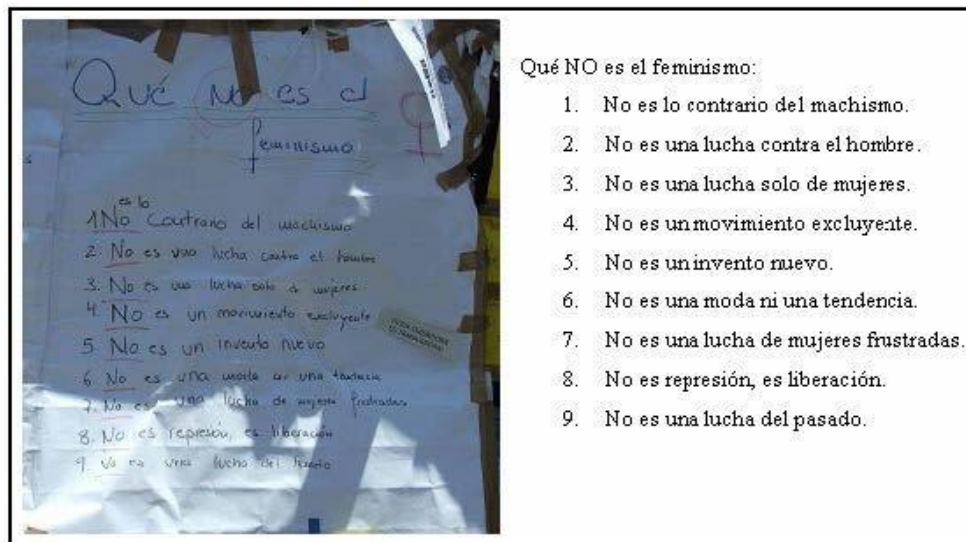 Qué NO es el
feminismo
es lo
1. No contrario del machismo
2. No es una lucha contra el hombre
3. No es una lucha solo d mujeres
4. No es un movimiento excluyente
5. No es un invento nuevo
6. No es una moda ni una tendencia
7. No es una lucha de mujeres frustradas
8. No es represión, es liberación
9. No es una lucha del pasado
Qué NO es el feminismo:
1. No es lo contrario del machismo.
2. No es una lucha contra el hombre.
3. No es una lucha solo de mujeres.
4. No es un movimiento excluyente.
5. No es un invento nuevo.
6. No es una moda ni una tendencia.
7. No es una lucha de mujeres frustradas.
8. No es represión, es liberación.
9. No es una lucha del pasado.